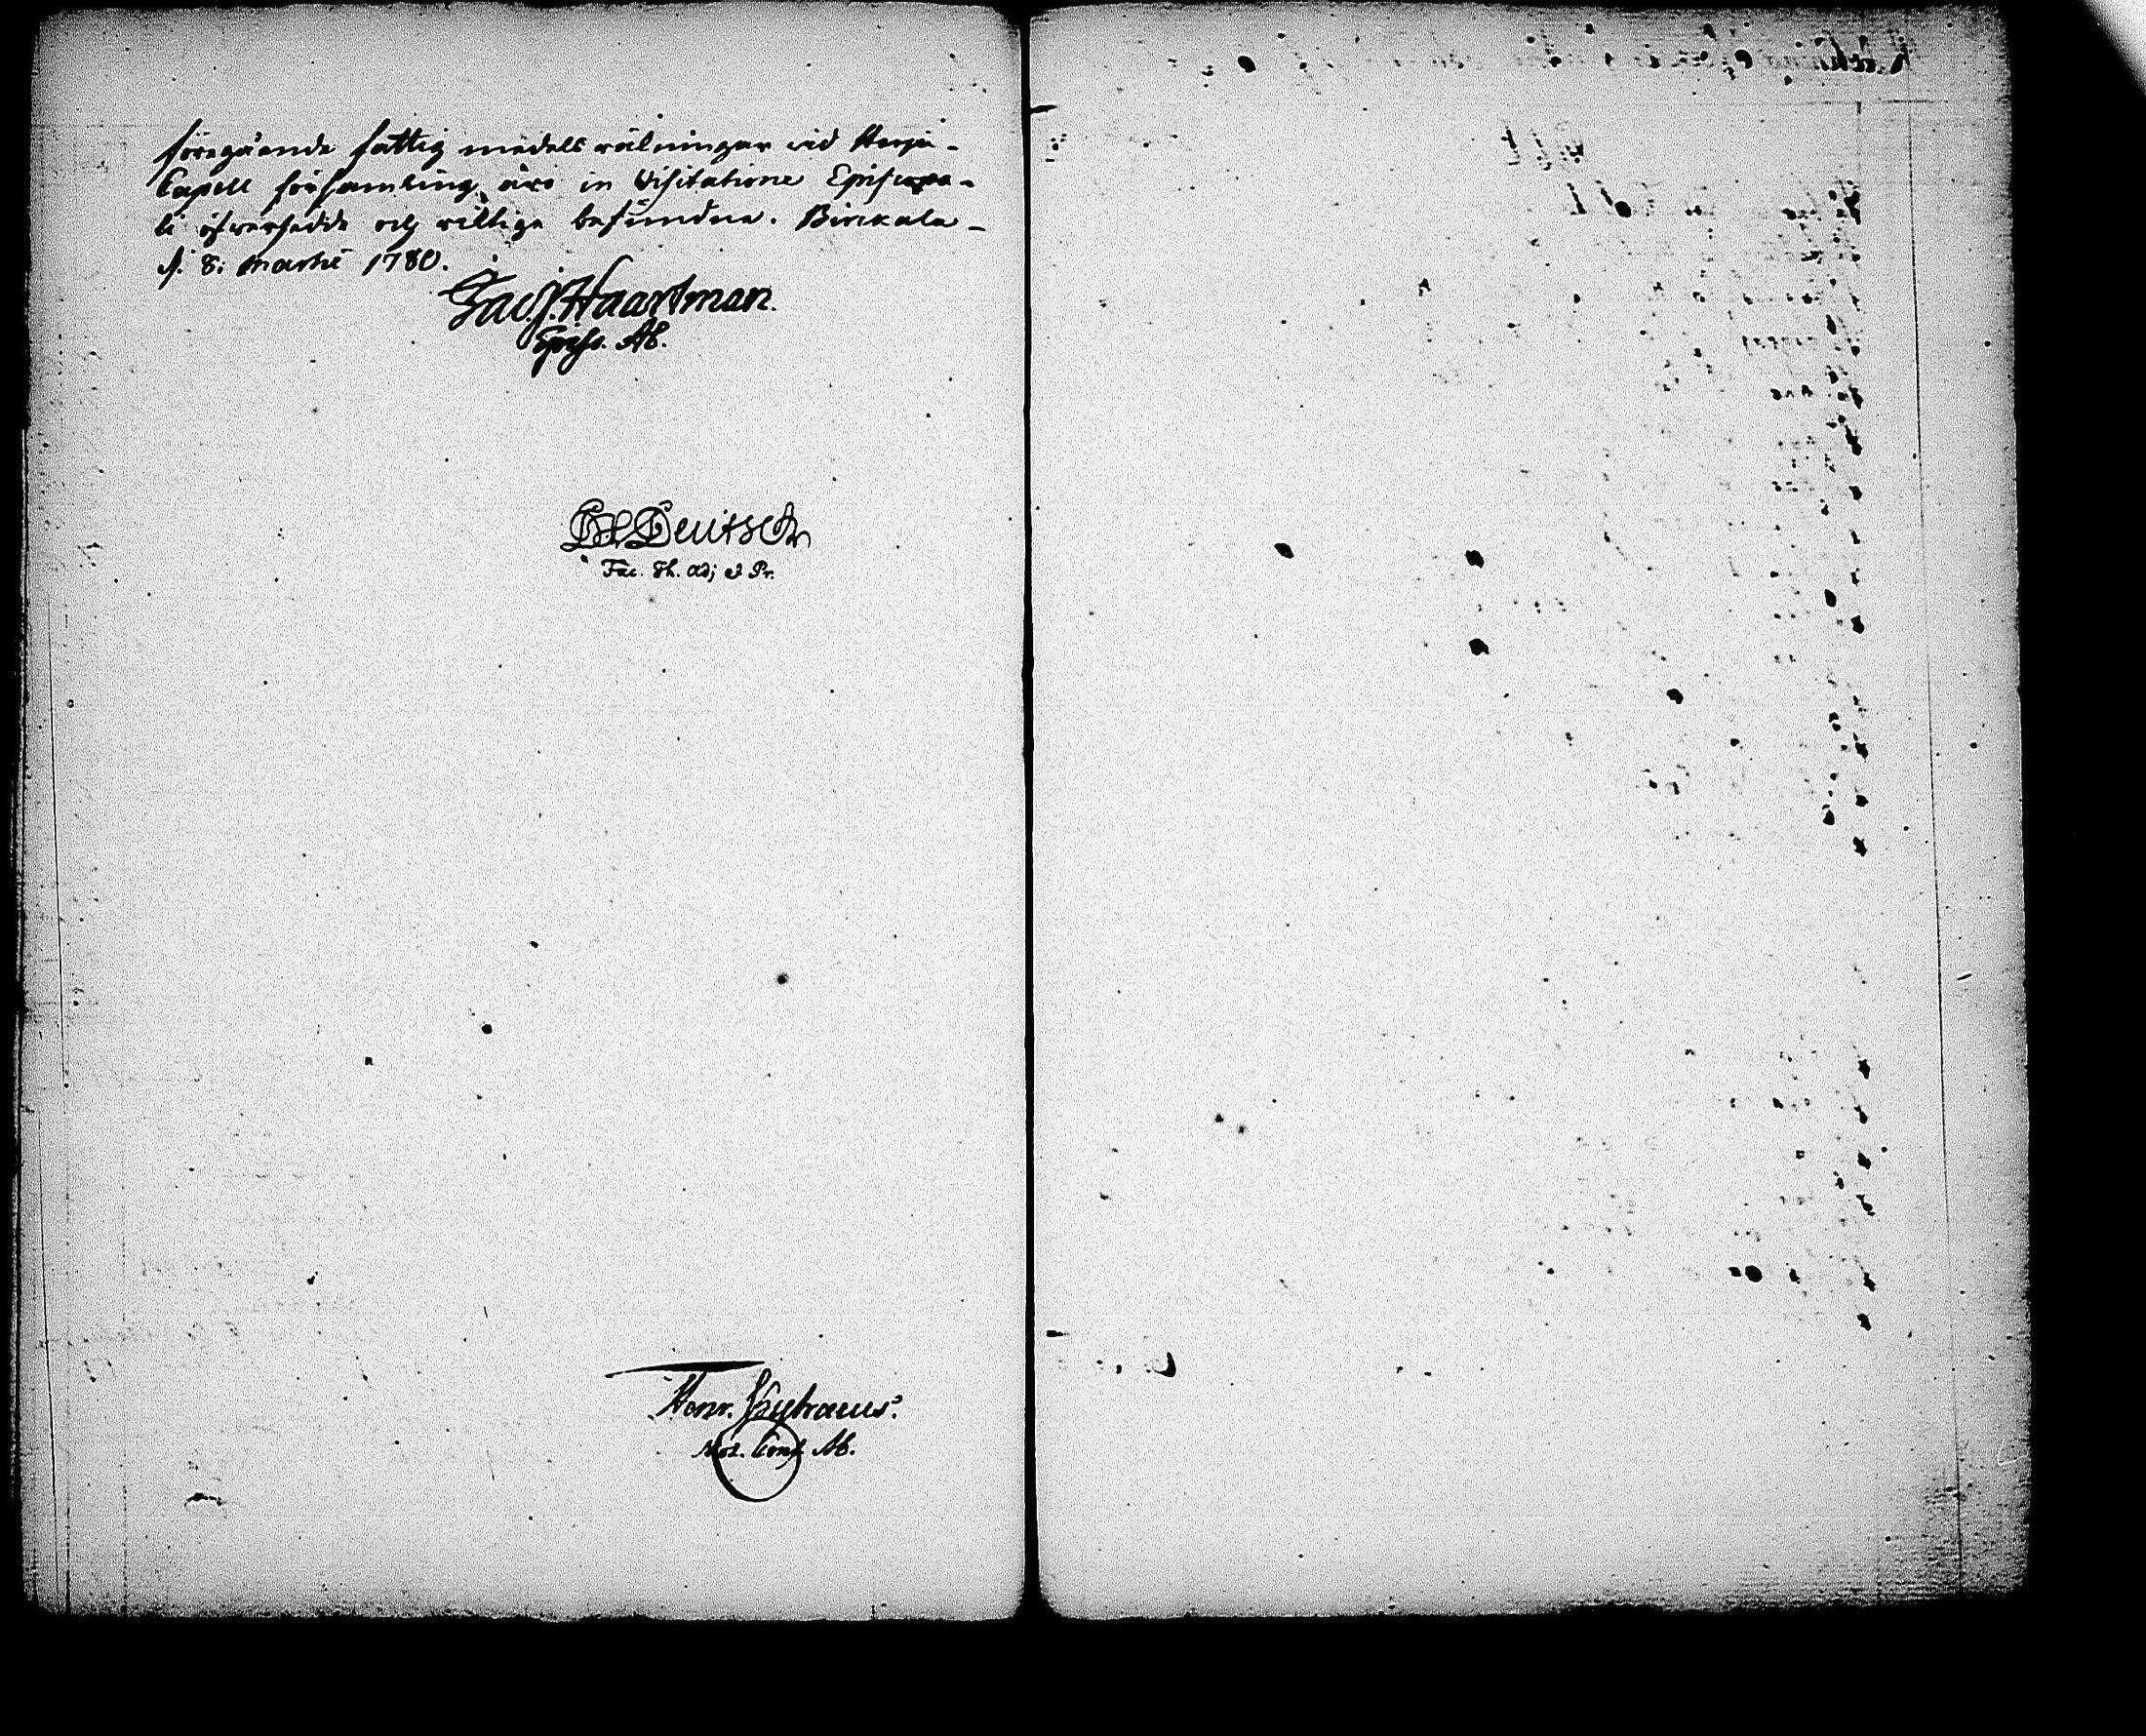 föregående fattig medels räkningar vid Harju-
Capell församling äro in Visitatione Episcopa-
li öfwersedde ochricktige befundne. Birckala
d. 8: Martii 1780.
Jac. J. Haartman.
Episc. Ab.
Deutsch
Fac. Th. Adj & Pr.
Henr.
Not. Cons. Ab.